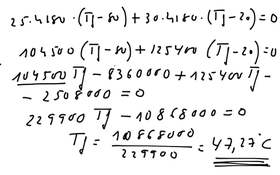 25.4180.(Tj-80)+30.4180.(Tj-20)=0
104500 (Tj-80)+125400 (Tj-20)=0
104500 Tj-8360000+125400 Tj-
-2508000=0
229900 Tj-10868000=0
Tj= 10868000/229900 =47,27°C